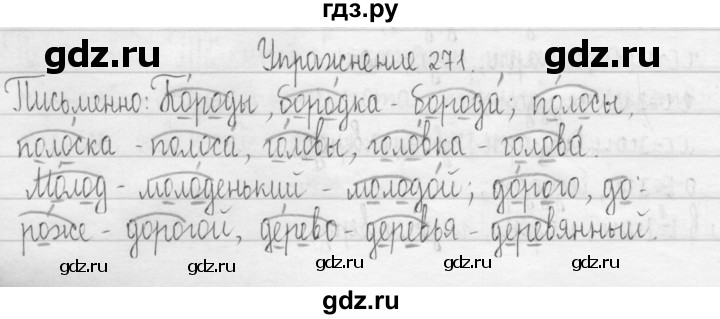 гдз.ру
gdz.ru gdz.ru gdz.ru
Упражнение 271.
Письменно: Бо́роды, боро́дка - борода́; по́лосы,
поло́ска - полоса́, го́ловы, голо́вка - голова́.
Мо́лод - моло́денький - молодо́й; до́рого, до-
ро́же - дорого́й, де́рево - дере́вья - деревя́нный.
gdz.ru gdz.ru gdz.ru gdz.ru gdz.ru
gdz.ru